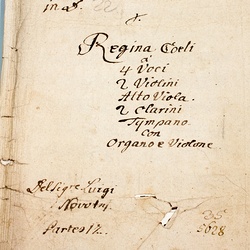 in D.
Regina Coeli
à
4 Voci
2 Violini
Alto Viola.
2 Clarini
Tympano
con
Organo e Violone.
Del Sigre Luigi
Novotni
Partes 12.
5028